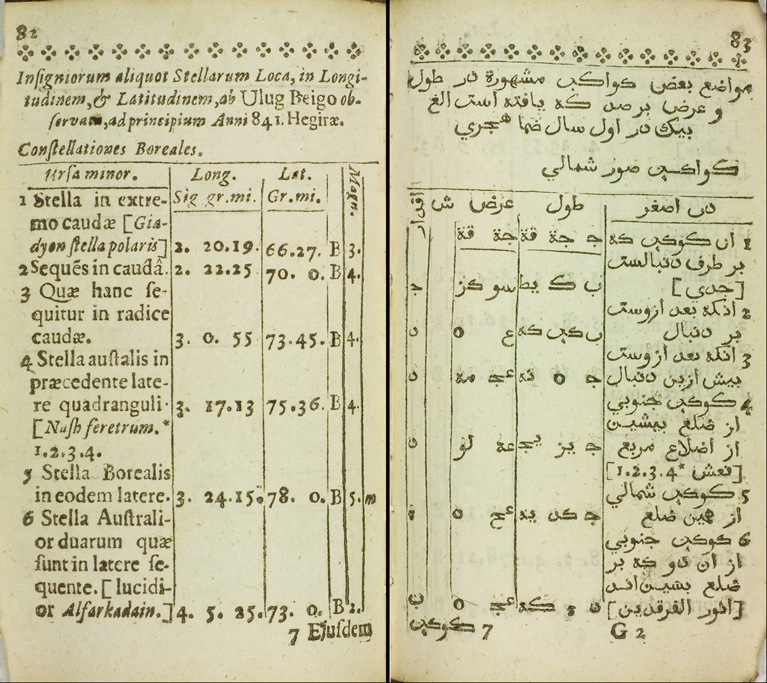 82
Insigniorum aliquot Stellarum Loca, in Longi-
tudinem, & Latitudinem, ab Ulug Beigo ob-
servata, ad principium Anni 841. Hegiræ.
Constellationes Boreales.
Ursa minor. Long. Lat. Magn.
Sig gr. mi. Gr. mi.
1 Stella in extre-
mo caudæ [Gia-
dy on stella polaris] 2. 20.19. 66.27. B 3.
2 Sequēs in caudâ. 2. 22.25 70. 0. B 4.
3 Quæ hanc se-
quitur in radice
caudæ. 3. 0. 55 73.45. B 4.
4 Stella australis in
præcedente late-
re quadranguli. 3. 17.13 75.36. B 4.
[Nash feretrum.*
1.2.3.4.
5 Stella Borealis
in eodem latere. 3. 24.15. 78. 0. B 5. m
6 Stella Australi-
or duarum quæ
sunt in latere se-
quente. [lucidi-
or Alfarkadain.] 4. 5. 25. 73. 0. B 2.
7 Ejusdem
83
مواضع بعض كواكب مشهورة در طول
و عرض برصد كه يافته است الغ
بيك در اول سال ضما هجري
كواكب صور شمالي
دب اصغر طول عرض
1 ان كوكب كه
بر طرف دنبالست
[جدي]
2 انكه بعد ازوست
بر دنبال
3 انكه بعد ازوست
بيش ازبن دنبال
4 كوكب جنوبي
از ضلع بيشين
از اضلاع مربع
[نعش *1.2.3.4]
5 كوكب شمالي
از همين ضلع
6 كوكب جنوبي
از ان دو كه بر
ضلع بسين اند
[انور الفرقدين]
7 كوكب
G 2